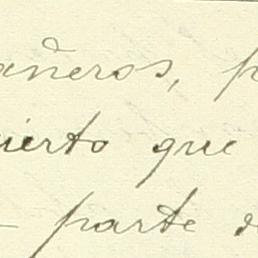 añeros, p
uierto que
- parte d